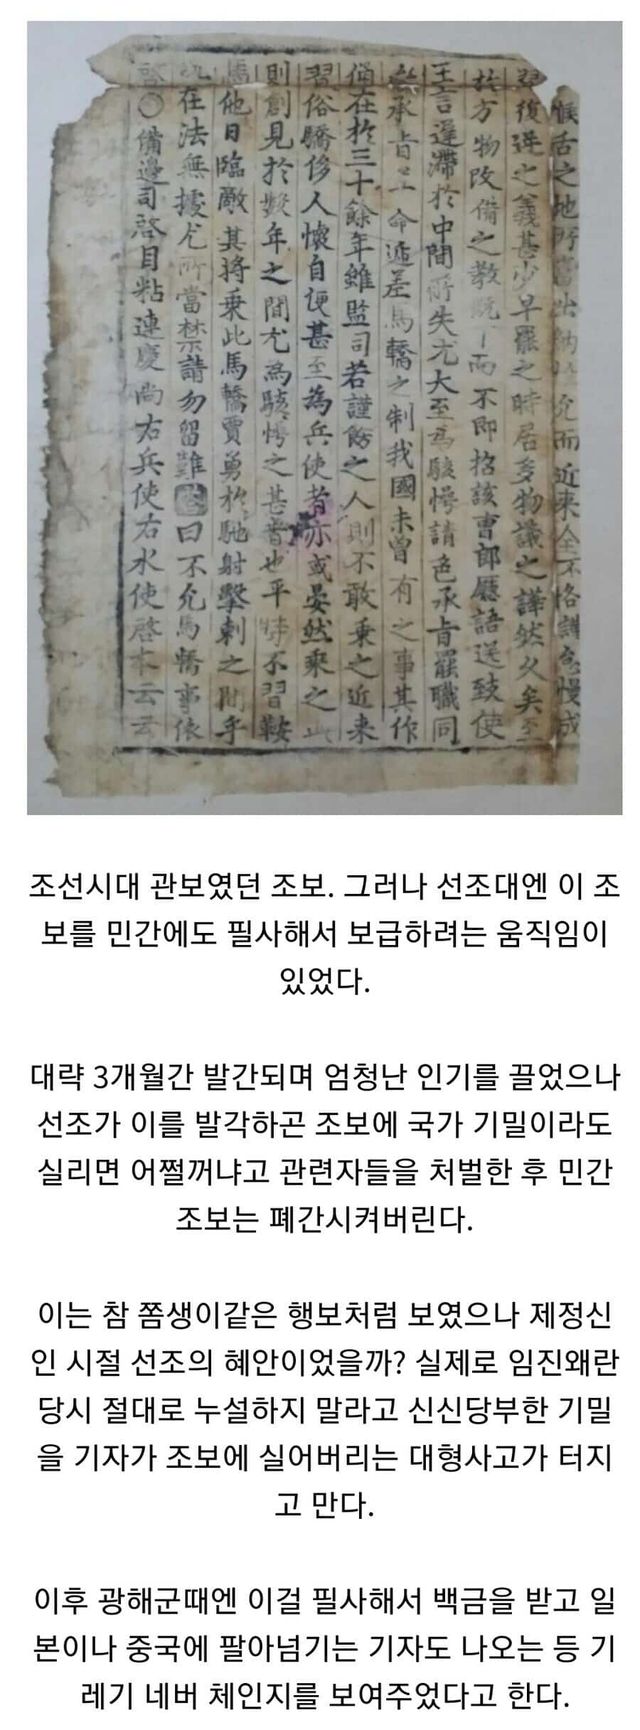 喉舌之地所當出納惟允而近来全不恪謹怠慢成
習復逆之義甚少早罷之時居多物議之譁然久矣至
於方物改備之教既下而不即招該曹郎廳語送致使
王言遲滯於中間所失尤大至爲駭愕請色承旨罷職同
承旨 命遞差馬轎之制我國未曾有之事其作
俑在於三十餘年雖監司若謹飭之人則不敢乘之近来
習俗驕侈人懷自便甚至為兵使者亦或晏然乘之此
則創見於數年之間尤爲駭愕之甚者也平時不習鞍
馬他日臨敵其將乘此馬轎賈勇於馳射擊刺之間乎
況在法無據尤所當禁請勿留難 曰不允馬轎事依
啓〇備邊司啓目粘連慶尚右兵使右水使啓本云云
조선시대 관보였던 조보. 그러나 선조대엔 이 조
보를 민간에도 필사해서 보급하려는 움직임이
있었다.
대략 3개월간 발간되며 엄청난 인기를 끌었으나
선조가 이를 발각하곤 조보에 국가 기밀이라도
실리면 어쩔꺼냐고 관련자들을 처벌한 후 민간
조보는 폐간시켜버린다.
이는 참 쫌생이같은 행보처럼 보였으나 제정신
인 시절 선조의 혜안이었을까? 실제로 임진왜란
당시 절대로 누설하지 말라고 신신당부한 기밀
을 기자가 조보에 실어버리는 대형사고가 터지
고 만다.
이후 광해군때엔 이걸 필사해서 백금을 받고 일
본이나 중국에 팔아넘기는 기자도 나오는 등 기
레기 네버 체인지를 보여주었다고 한다.